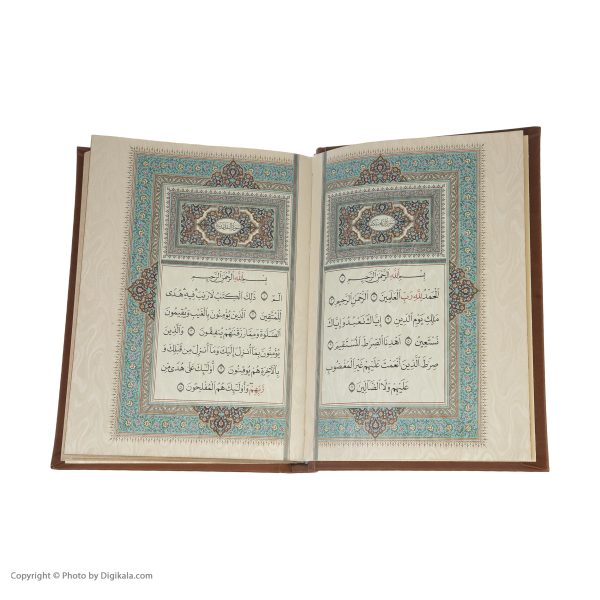 بِسْمِ اللَّهِ الرَّحْمٰنِ الرَّحِيمِ ۝
الْحَمْدُ لِلَّهِ رَبِّ الْعَالَمِينَ ۝ الرَّحْمٰنِ الرَّحِيمِ ۝
مَالِكِ يَوْمِ الدِّينِ ۝ إِيَّاكَ نَعْبُدُ وَإِيَّاكَ
نَسْتَعِينُ ۝ اهْدِنَا الصِّرَاطَ الْمُسْتَقِيمَ ۝
صِرَاطَ الَّذِينَ أَنْعَمْتَ عَلَيْهِمْ غَيْرِ الْمَغْضُوبِ
عَلَيْهِمْ وَلَا الضَّالِّينَ ۝
بِسْمِ اللَّهِ الرَّحْمٰنِ الرَّحِيمِ
الم ۝ ذٰلِكَ الْكِتَابُ لَا رَيْبَ فِيهِ هُدًى
لِلْمُتَّقِينَ ۝ الَّذِينَ يُؤْمِنُونَ بِالْغَيْبِ وَيُقِيمُونَ
الصَّلٰوةَ وَمِمَّا رَزَقْنَاهُمْ يُنْفِقُونَ ۝ وَالَّذِينَ
يُؤْمِنُونَ بِمَا أُنْزِلَ إِلَيْكَ وَمَا أُنْزِلَ مِنْ قَبْلِكَ وَ
بِالْآخِرَةِ هُمْ يُوقِنُونَ ۝ أُولٰئِكَ عَلَىٰ هُدًى مِنْ
رَبِّهِمْ وَأُولٰئِكَ هُمُ الْمُفْلِحُونَ ۝
Copyright © Photo by Digikala.com